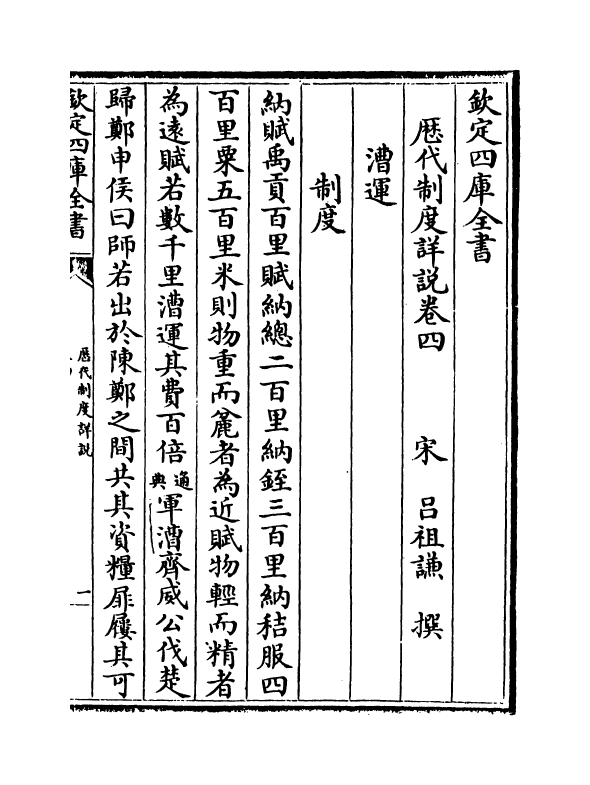 欽定四庫全書
歴代制度詳說卷四　宋　呂祖謙　撰
漕運
制度
納賦禹貢百里賦納總二百里納銍三百里納秸服四
百里粟五百里米則物重而麄者為近賦物輕而精者
為逺賦若數千里漕運其費百倍通典軍漕齊威公伐楚
歸鄭申侯曰師若出於陳鄭之間共其資糧扉屨其可
欽定四庫全書
歴代制度詳說
一